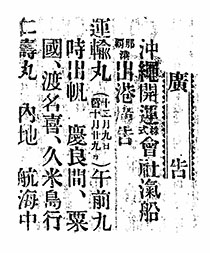 廣告
沖繩開運株式會社滊船
那覇港出港廣告
運輸丸(十二月九日舊十月廿九日)午前九
時出帆 慶良間、粟
國、渡名喜、久米島行
仁壽丸 內地 航海中